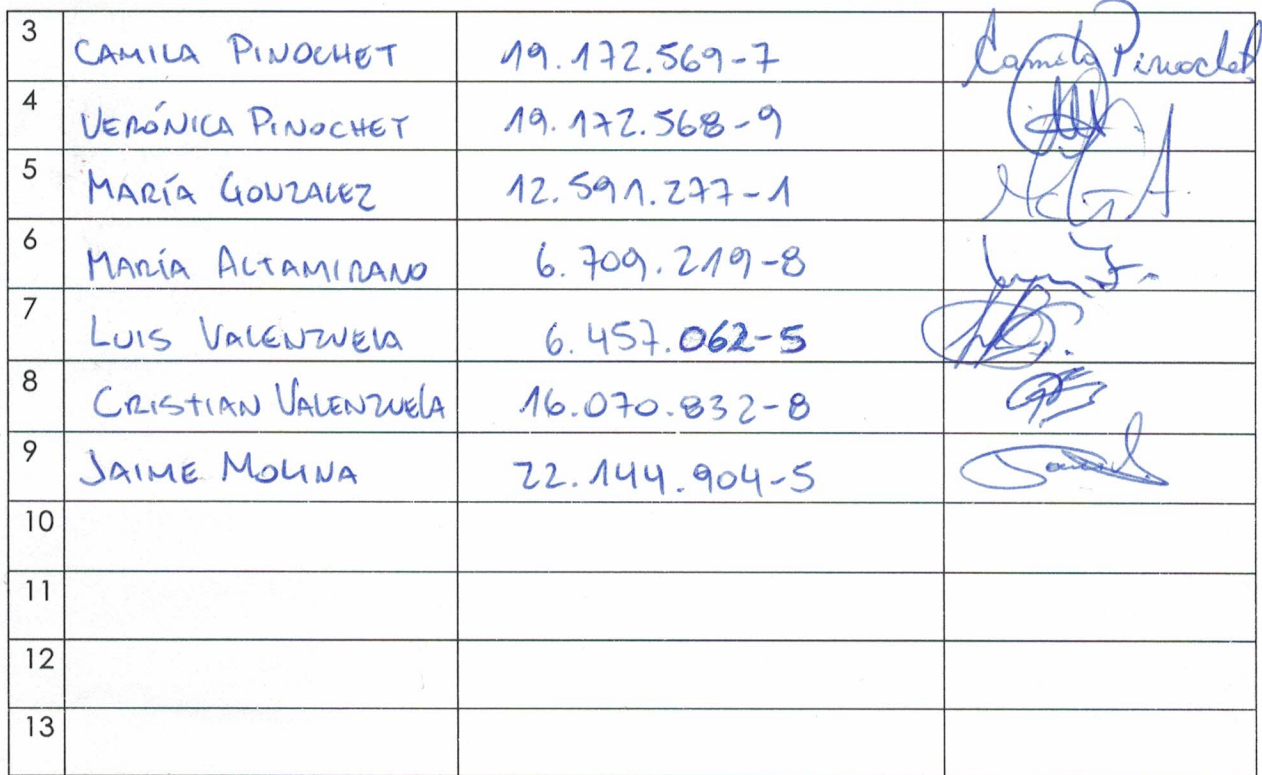 3 CAMILA PINOCHET 19.172.569-7 Camila Pinochet
4 VERÓNICA PINOCHET 19.172.568-9
5 MARÍA GONZALEZ 12.591.277-1
6 MARÍA ALTAMIRANO 6.709.219-8
7 LUIS VALENZUELA 6.457.062-5
8 CRISTIAN VALENZUELA 16.070.832-8
9 JAIME MOLINA 22.144.904-5
10
11
12
13